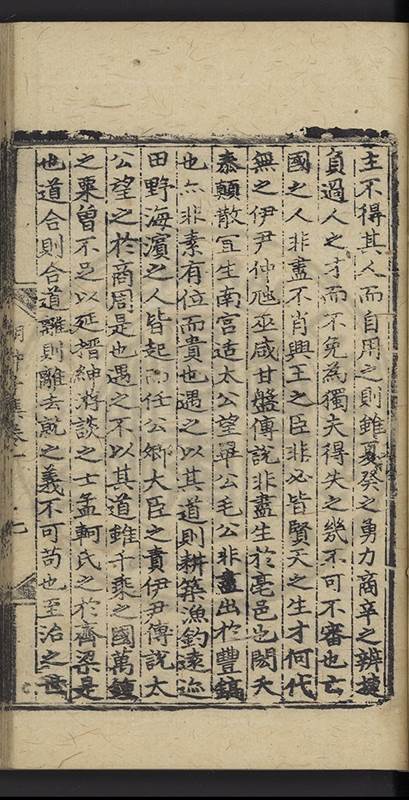 主不得其人而自用之則雖夏癸之勇力商辛之辨捷
負過人之才而不免爲獨夫得失之幾不可不審也亡
國之人非盡不肖興王之臣非必皆賢天之生才何代
無之伊尹仲虺巫咸甘盤傅說非盡生於亳邑閎夭
泰顛散宜生南宮适太公望畢公毛公非盡出於豐鎬
也亦非素有位而貴也遇之以其道則耕築漁釣遠迹
田野海濱之人皆起而任公卿大臣之責伊尹傅說太
公望之於商周是也遇之不以其道雖千乘之國萬鍾
之粟曾不足以延搢紳游談之士孟軻氏之於齊梁是
也道合則合道離則離去就之義不可苟也至治之世
集卷一 七